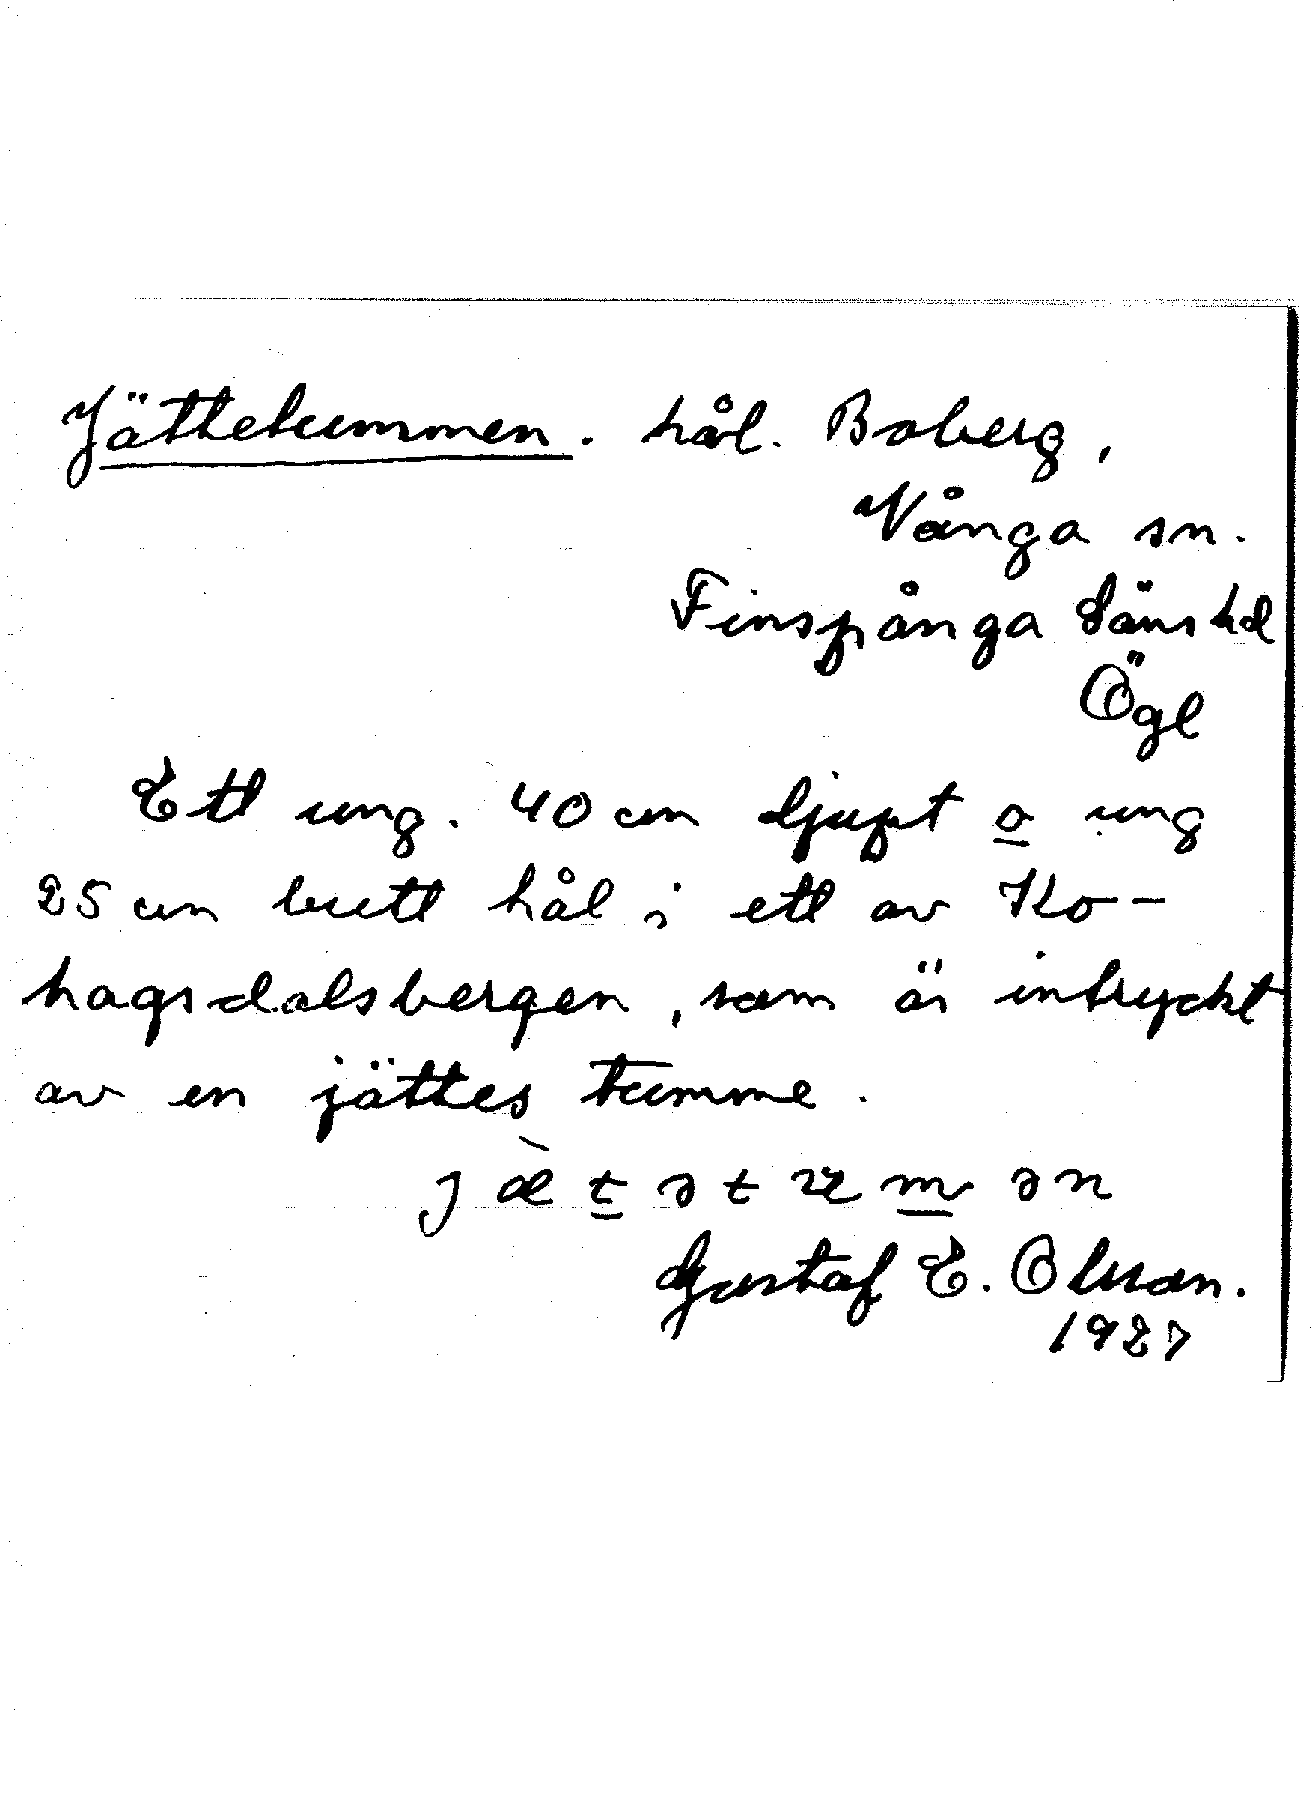 Jättetummen. hål. Boberg,
Vånga sn.
Finspånga läns hd
Ögl
Ett ung. 40 cm djupt o ung
25 cm brett hål i ett av Ko-
hagsdalsbergen, som är intryckt
av en jättes tumme.
Gustaf E. Olsson.
1927